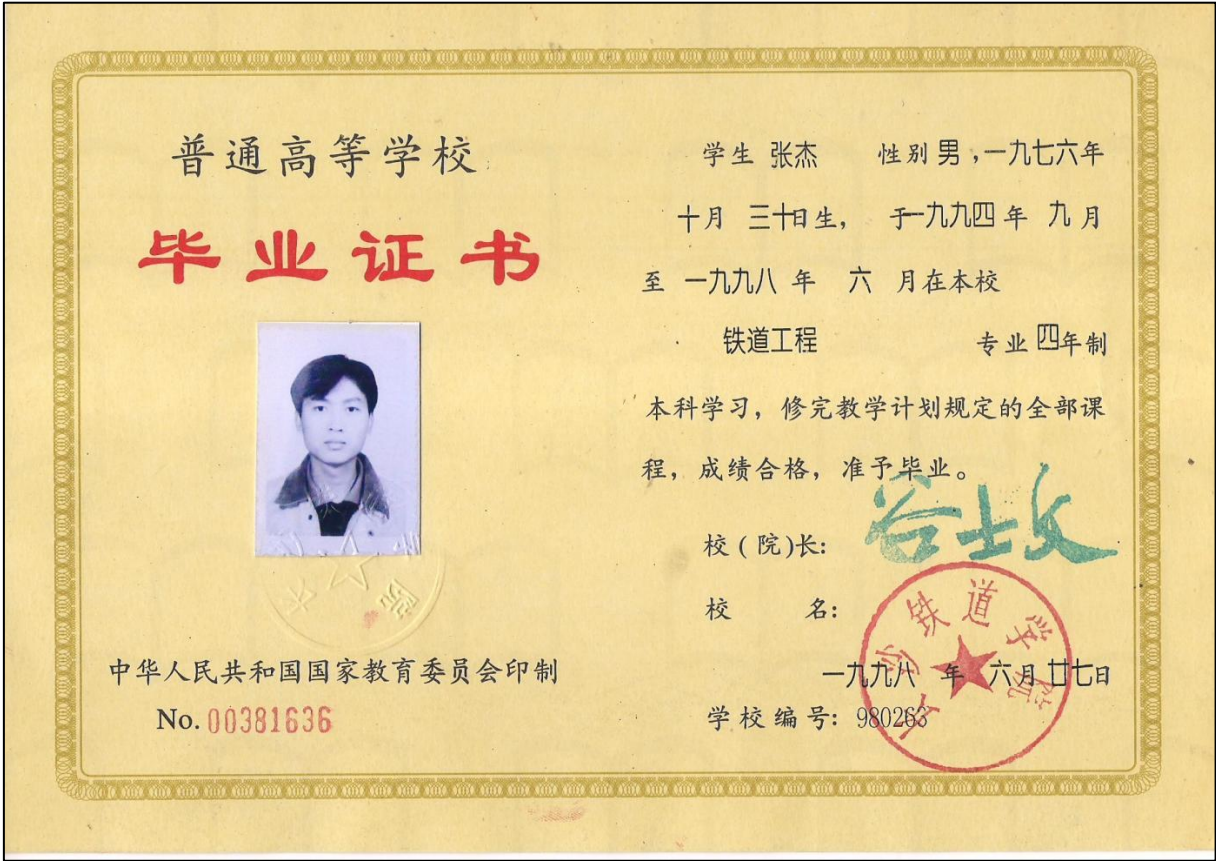 普通高等学校
毕业证书
中华人民共和国国家教育委员会印制
No. 00381636
学生 张杰 性别 男,一九七六年
十月 三十日生, 于一九九四 年 九 月
至 一九九八 年 六 月在本校
铁道工程 专业 四年制
本科学习,修完教学计划规定的全部课
程,成绩合格,准予毕业。
校(院)长: 谷士文
校 名:
长沙铁道学院
一九九八 年 六月 廿七日
学校编号: 980263